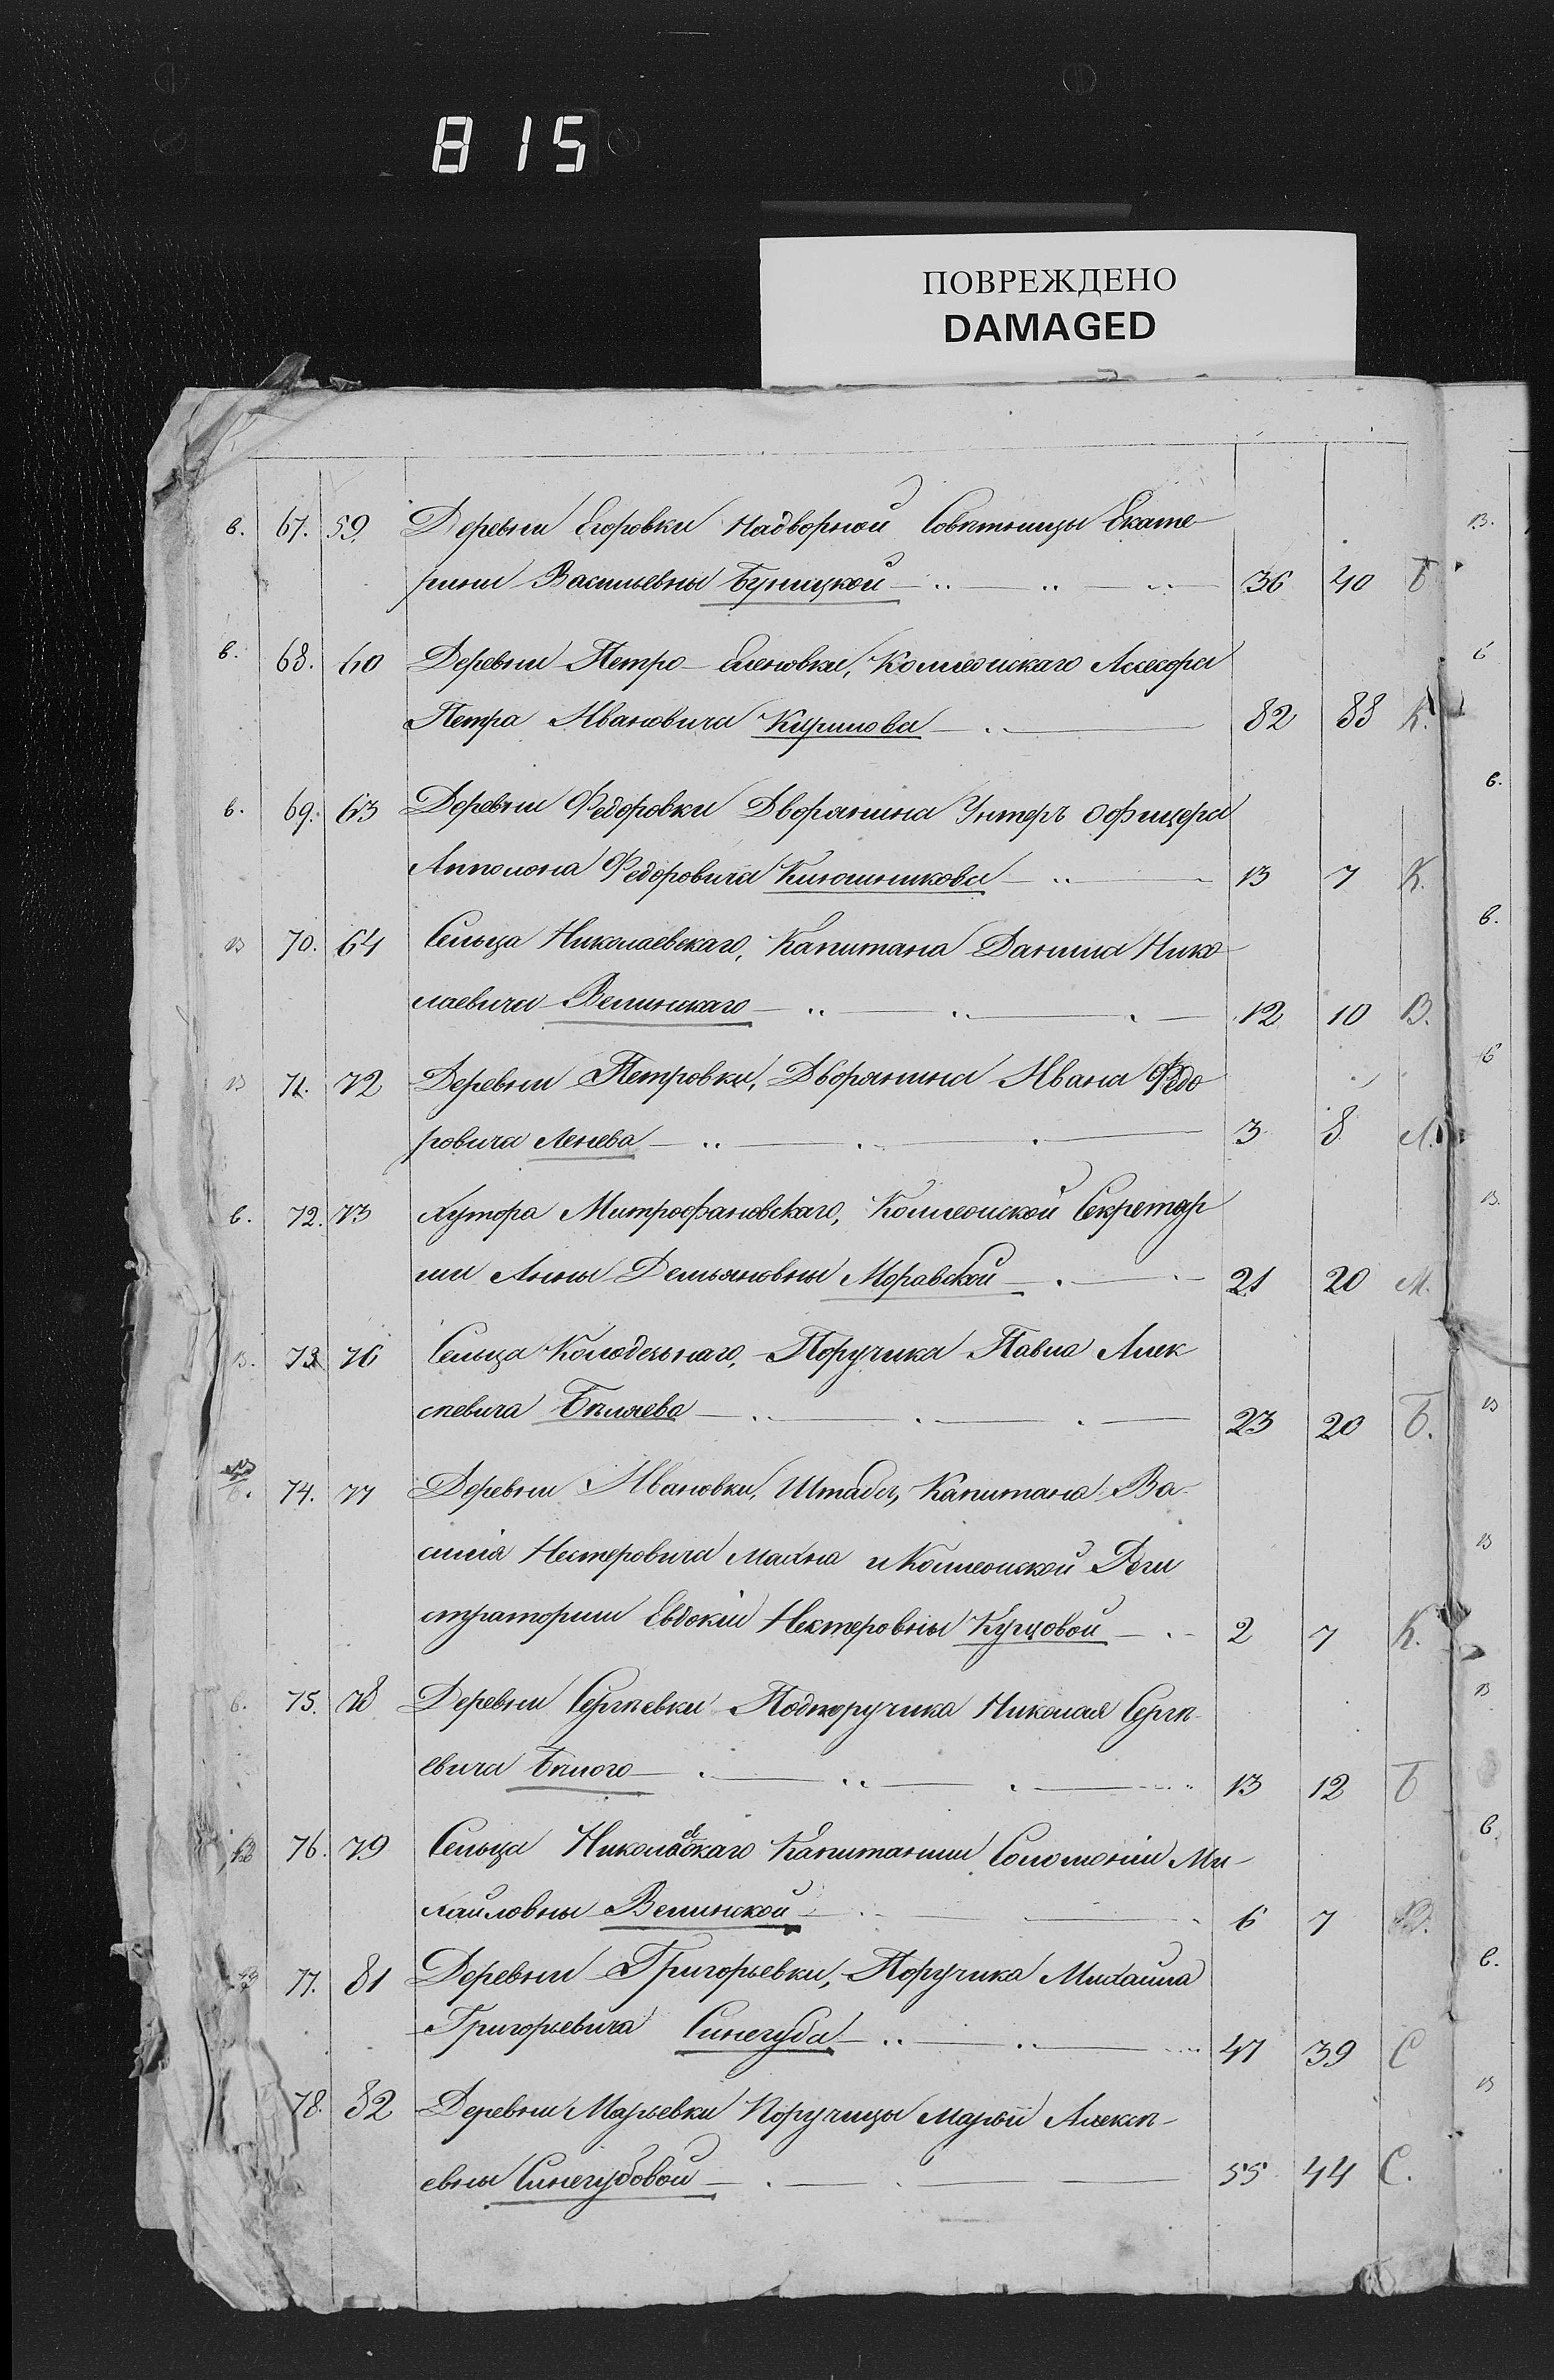 815
ПОВРЕЖДЕНО
DAMAGED
в. 67. 59. Деревни Егоровки Надворной Совѣтницы Екате
рины Васильевны Буницкой 36 40 Б
в. 68. 60 Деревни Петро-Еленовки, Коллежскаго Ассесора
Петра Ивановича Кирилова 82 88 К.
в. 69. 63 Деревни Федоровки Дворянина Унтеръ офицера
Апполона Федоровича Ключникова 13 7 К.
В 70. 64 Сельца Николаевскаго, Капитана Данила Нико
лаевича Велинскаго 12 10 В.
В 71. 72 Деревни Петровки, Дворянина Ивана Федо
ровича Ленева 3 8 Л.
в. 72. 73 Хутора Митрофановскаго, Коллежской Секретар
ши Анны Демьяновны Моравской 21 20 М.
В. 73 76 Сельца Колодезьнаго, Поручика Павла Алек
сѣевича Бѣляева 23 20 Б.
74. 77 Деревни Ивановки, Штабсъ, Капитана Ва-
силія Нестеровича Махна и Коллежской Реги
страторши Евдокіи Нестеровны Купцовой 2 7 К.
в. 75. 78 Деревни Сергѣевки Подпоручика Николая Сергѣ-
евича Бѣлого 13 12 Б
В 76. 79 Сельца Николаевскаго Капитанши Соломоніи Ми-
хайловны Велинской 6 7 В.
77. 81 Деревни Григорьевки, Поручика Михаила
Григорьевича Синегуба 47 39 С
78. 82 Деревни Марьевки Поручицы Марьи Алексѣ-
евны Синегубовой 55 44 С.
В.
в
в.
в.
в
В.
В
В
В
в.
в.
В